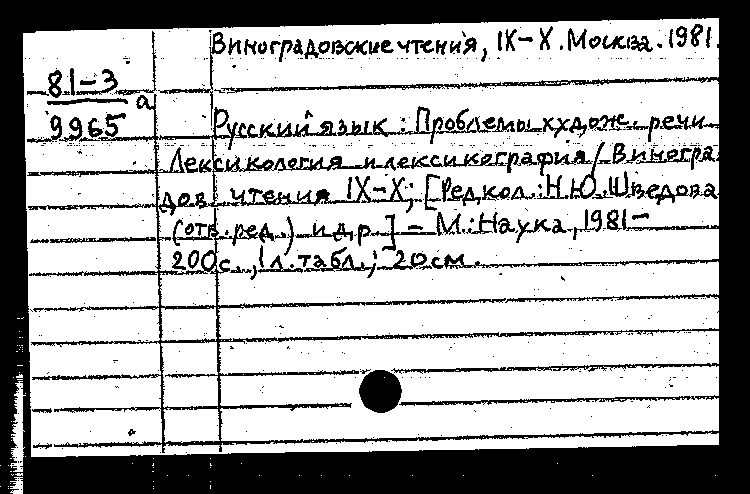 Виноградовские чтения, IX-X. Москва. 1981.
81-3 а
9965
Русский язык: Проблемы худож. речи
Лексикология и лексикография / Виногра
дов. чтения IX-X; [Редкол.: Н.Ю. Шведова
(отв. ред.) и др.] - М.: Наука, 1981-
200с., 1л. табл.; 20см.